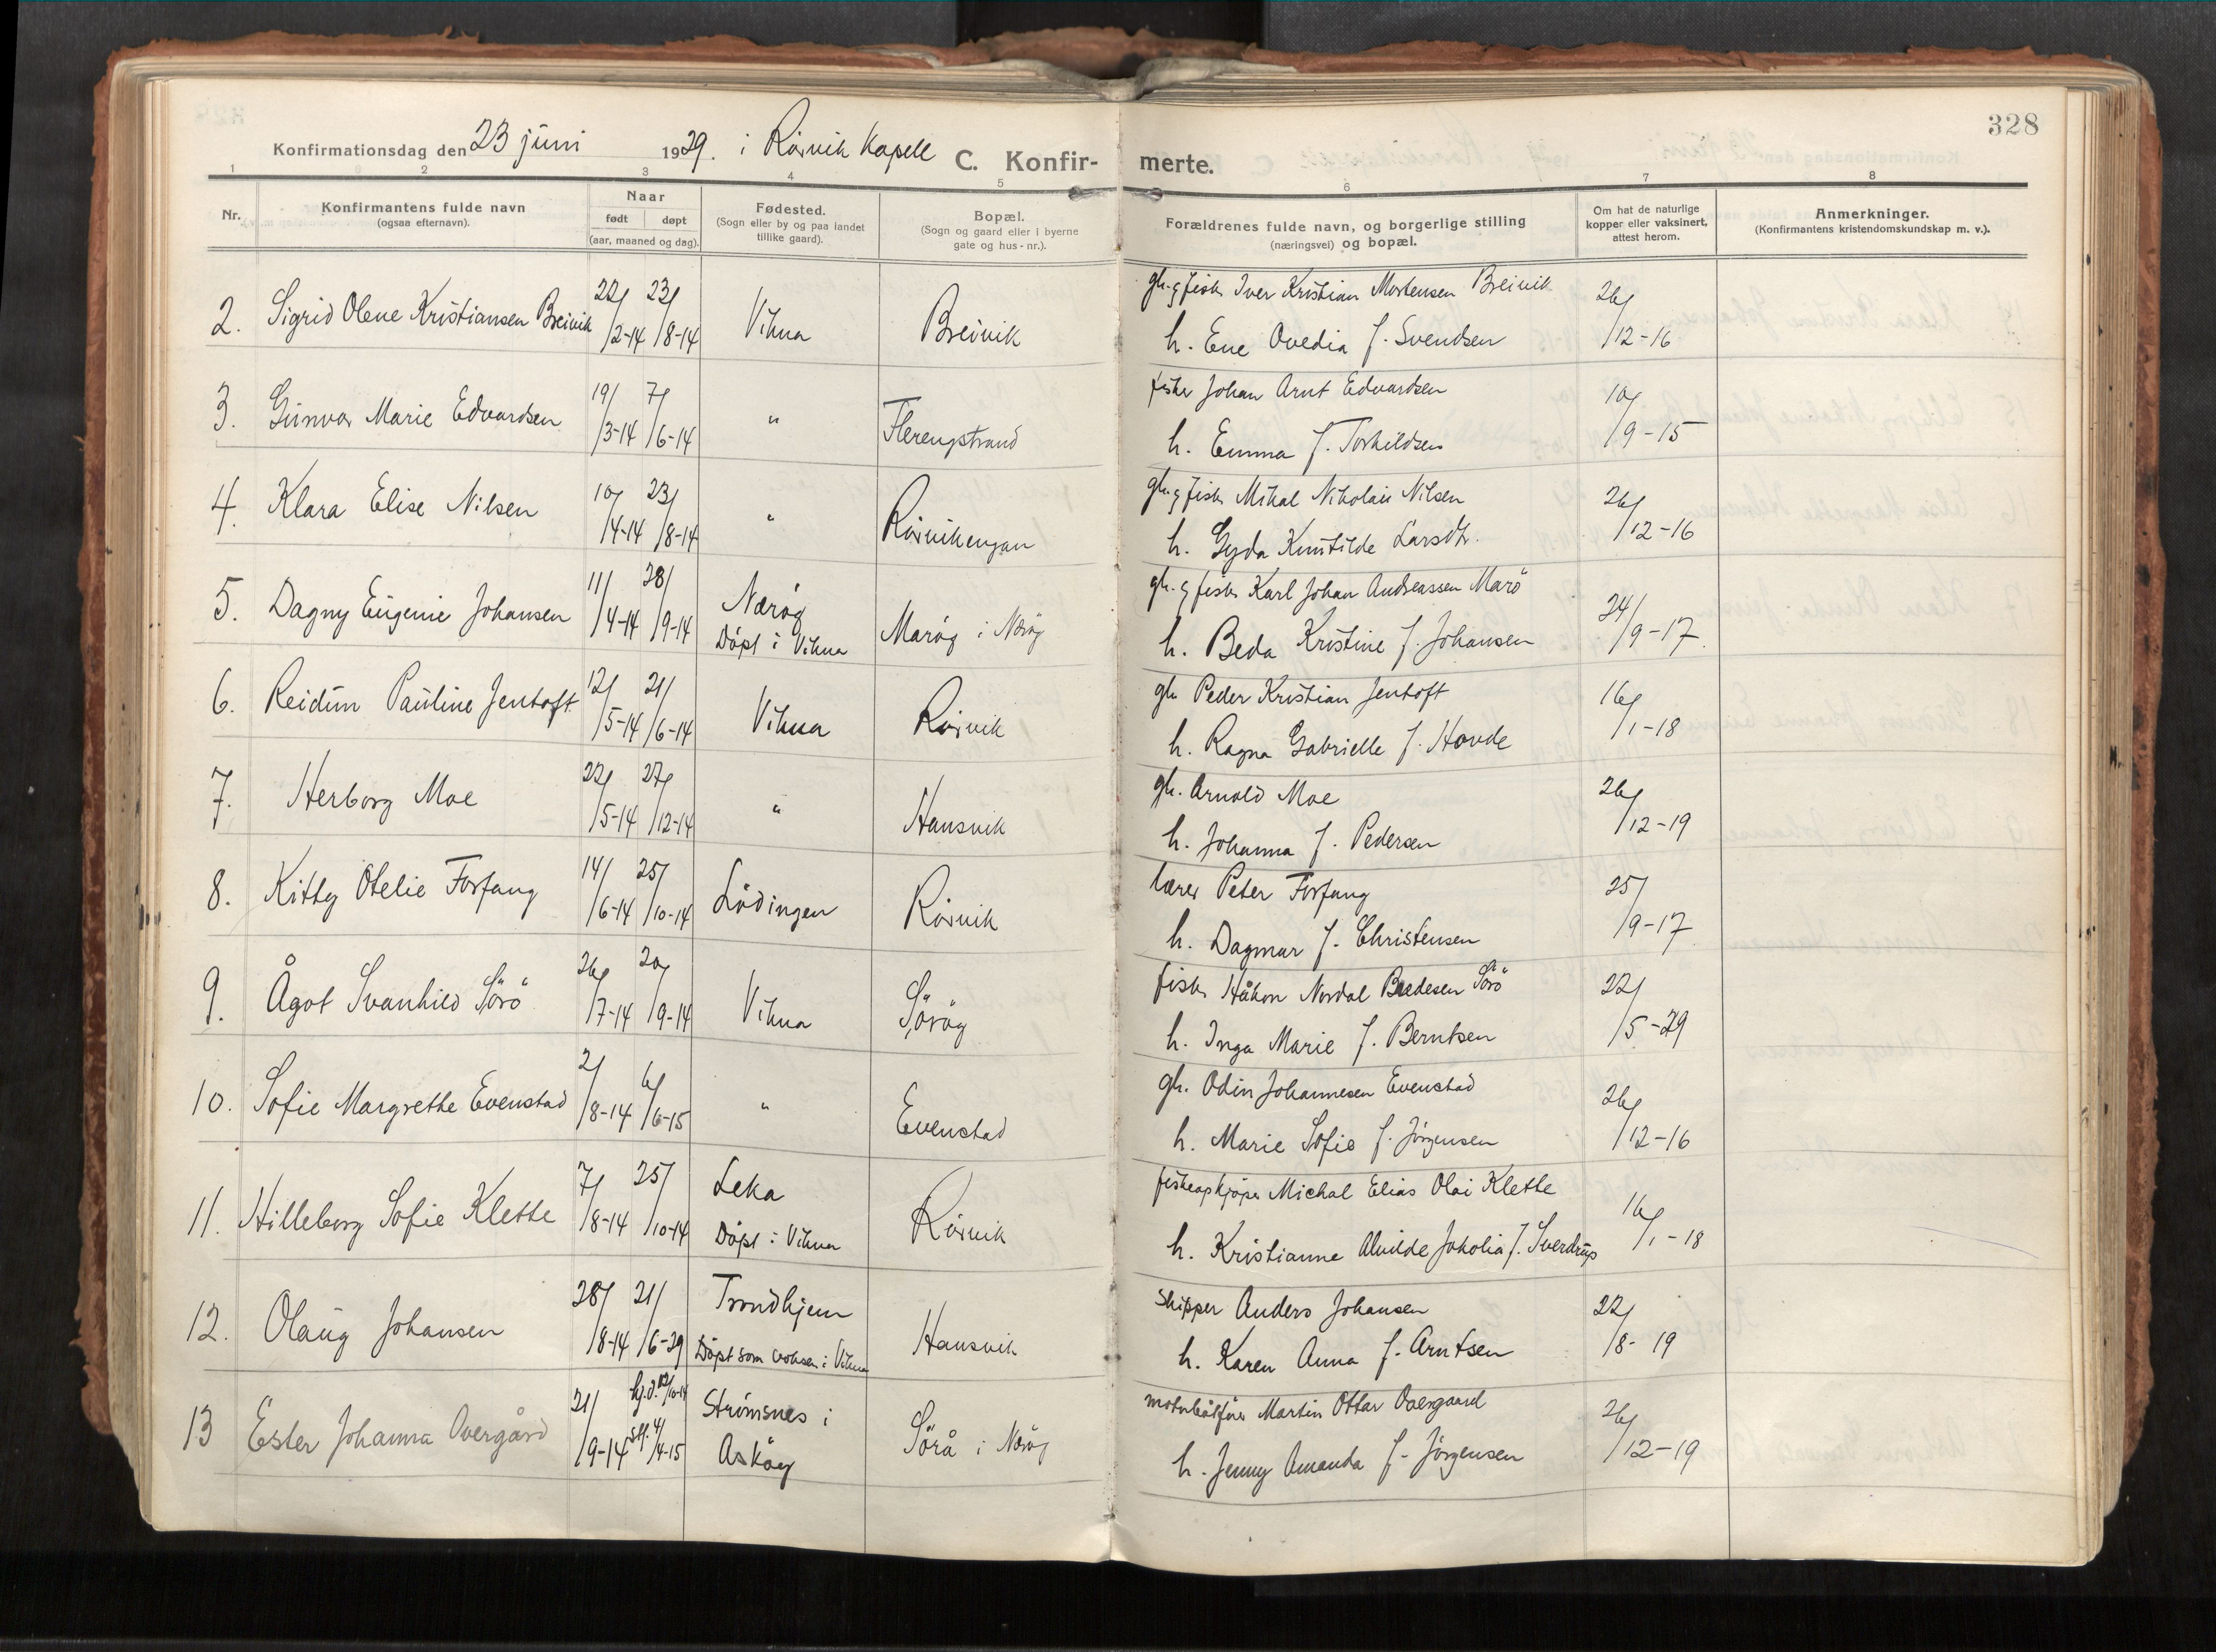 328
Konfirmationsdag den 23 juni 1929. i Rörvik Kapell C. Konfir- merte.
1 2 3 4 5 6 7 8
Nr.
Konfirmantens fulde navn
(ogsaa efternavn).
Naar
født døpt
(aar, maaned og dag).
Fødested.
(Sogn eller by og paa landet
tillike gaard).
Bopæl.
(Sogn og gaard eller i byerne
gate og hus-nr.).
Forældrenes fulde navn, og borgerlige stilling
(næringsvei) og bopæl.
Om hat de naturlige
kopper eller vaksinert,
attest herom.
Anmerkninger.
(Konfirmantens kristendomskundskap m. v.).
2. Sigrid Olene Kristiansen Breivik 22/2-14 23/8-14 Vikna Breivik
gb. g fisk. Iver Kristian Mortensen Breivik
h. Ene Ovedia f. Svendsen
26/12-16
3. Gunvor Marie Edvardsen 19/3-14 7/6-14 " Flerengstrand
fisker Johan Arnt Edvardsen
h. Emma f. Torkildsen
10/9-15
4. Klara Elise Nilsen 10/4-14 23/8-14 " Rörvikengan
gb. g fisk. Mikal Nikolai Nilsen
h. Gyda Knutilde Larsdtr.
26/12-16
5. Dagny Eugenie Johansen 11/4-14 28/9-14 Nærøy
Döpt i Vikna
Marøy i Nærøy
gb. g fisk Karl Johan Andreassen Marö
h. Beda Kristine f. Johansen
24/9-17.
6. Reidun Pauline Jentoft 12/5-14 21/6-14 Vikna Rörvik
gb Peder Kristian Jentoft
h. Ragna Gabrielle f. Hovde
16/1-18
7. Herborg Moe 22/5-14 27/12-14 " Hansvik
gb. Arnold Moe
h. Johanna f. Pedersen
26/12-19
8. Kitty Otelie Forfang 14/6-14 25/10-14 Lödingen Rörvik
lærer Peter Forfang
h. Dagmar f. Christensen
25/9-17
9. Ågot Svanhild Sörö 26/7-14 20/9-14 Vikna Söröy
fisk. Håkon Nordal Bredesen Sörö
h. Inga Marie f. Berntsen
22/5-29
10. Sofie Margrethe Evenstad 2/8-14 6/6-15 " Evenstad
gb. Odin Johannesen Evenstad
h. Marie Sofie f. Jörgensen
26/12-16
11. Hilleborg Sofie Klette 7/8-14 25/10-14 Leka
Döpt i Vikna
Rörvik
fiskeopkjöper Michal Elias Olai Klette
h. Kristianne Alvilde Jakolia f. Sverdrup
16/1-18
12. Olaug Johansen 28/8-14 21/6-29 Trondhjem
Döpt som voksen i Vikna
Hansvik
Skipper Anders Johansen
h. Karen Anna f. Arntsen
22/8-19
13 Ester Johanna Overgård 21/9-14 hj.d. 12/10-14
stf. 4/4-15
Strömsnes i
Asköy
Sörå i Nærøy
motorbåtförer Martin Ottar Overgaard
h. Jenny Amanda f. Jörgensen
26/12-19